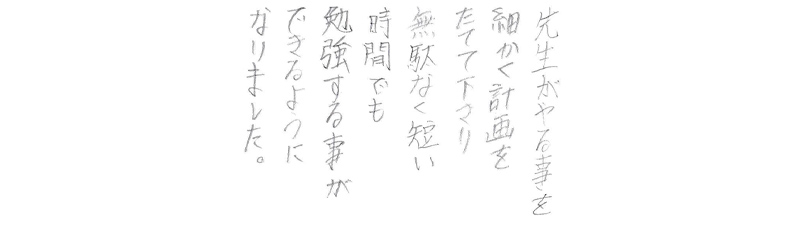 先生がやる事を
細かく計画を
たてて下さり
無駄なく短い
時間でも
勉強する事が
できるように
なりました。